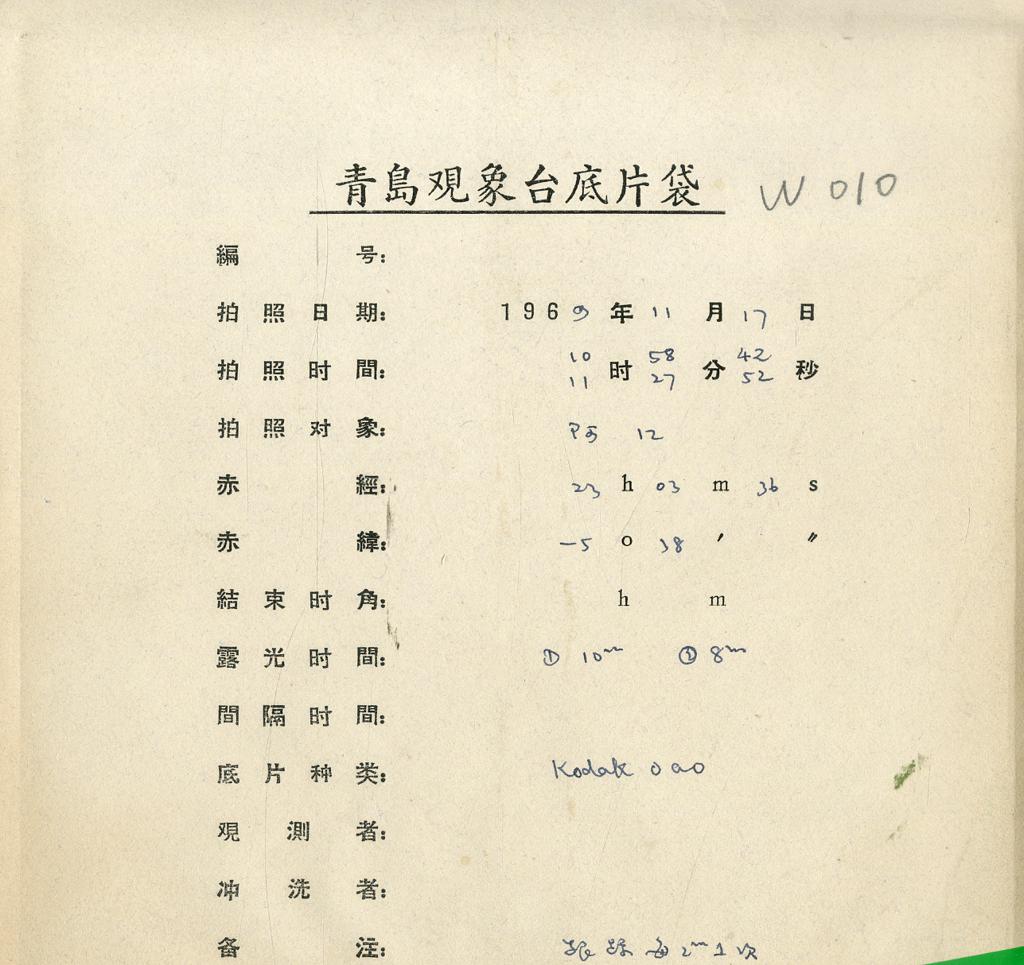 青島观象台底片袋 W 010
編号:
拍照日期: 1969年11月17日
拍照时間: 10 11 时 58 27 分 42 52 秒
拍照对象: 阿 12
赤經: 23 h 03 m 36 s
赤緯: -5 o 38 ′ ″
結束时角: h m
露光时間: ① 10ᵐ ② 8ᵐ
間隔时間:
底片种类: Kodak OaO
观測者:
冲洗者:
备注: 跟踪每2ᵐ1次